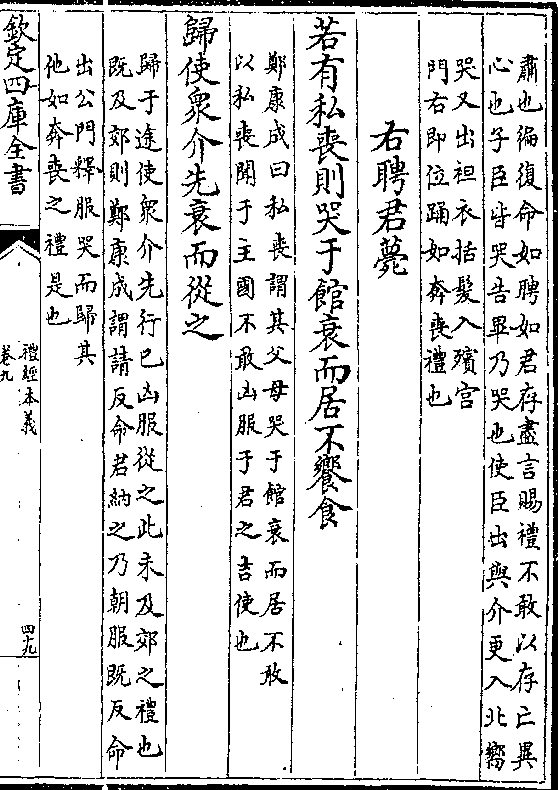 肅也徧復命如聘如君存盡言賜禮不敢以存亡異
心也子臣皆哭告畢乃哭也使臣出與介更入北嚮
哭又出袒衣括髮入殯宫
門右即位踊如奔喪禮也
右聘君薨
若有私喪則哭于館衰而居不饗食
鄭康成曰私喪謂其父母哭于館衰而居不敢
以私喪聞于主國不敢凶服于君之吉使也
歸使衆介先衰而從之
歸于途使衆介先行已凶服從之此未及郊之禮也
既及郊則鄭康成謂請反命君納之乃朝服既反命
出公門釋服哭而歸其
他如奔喪之禮是也
欽定四庫全書
禮經本義
卷九
四九